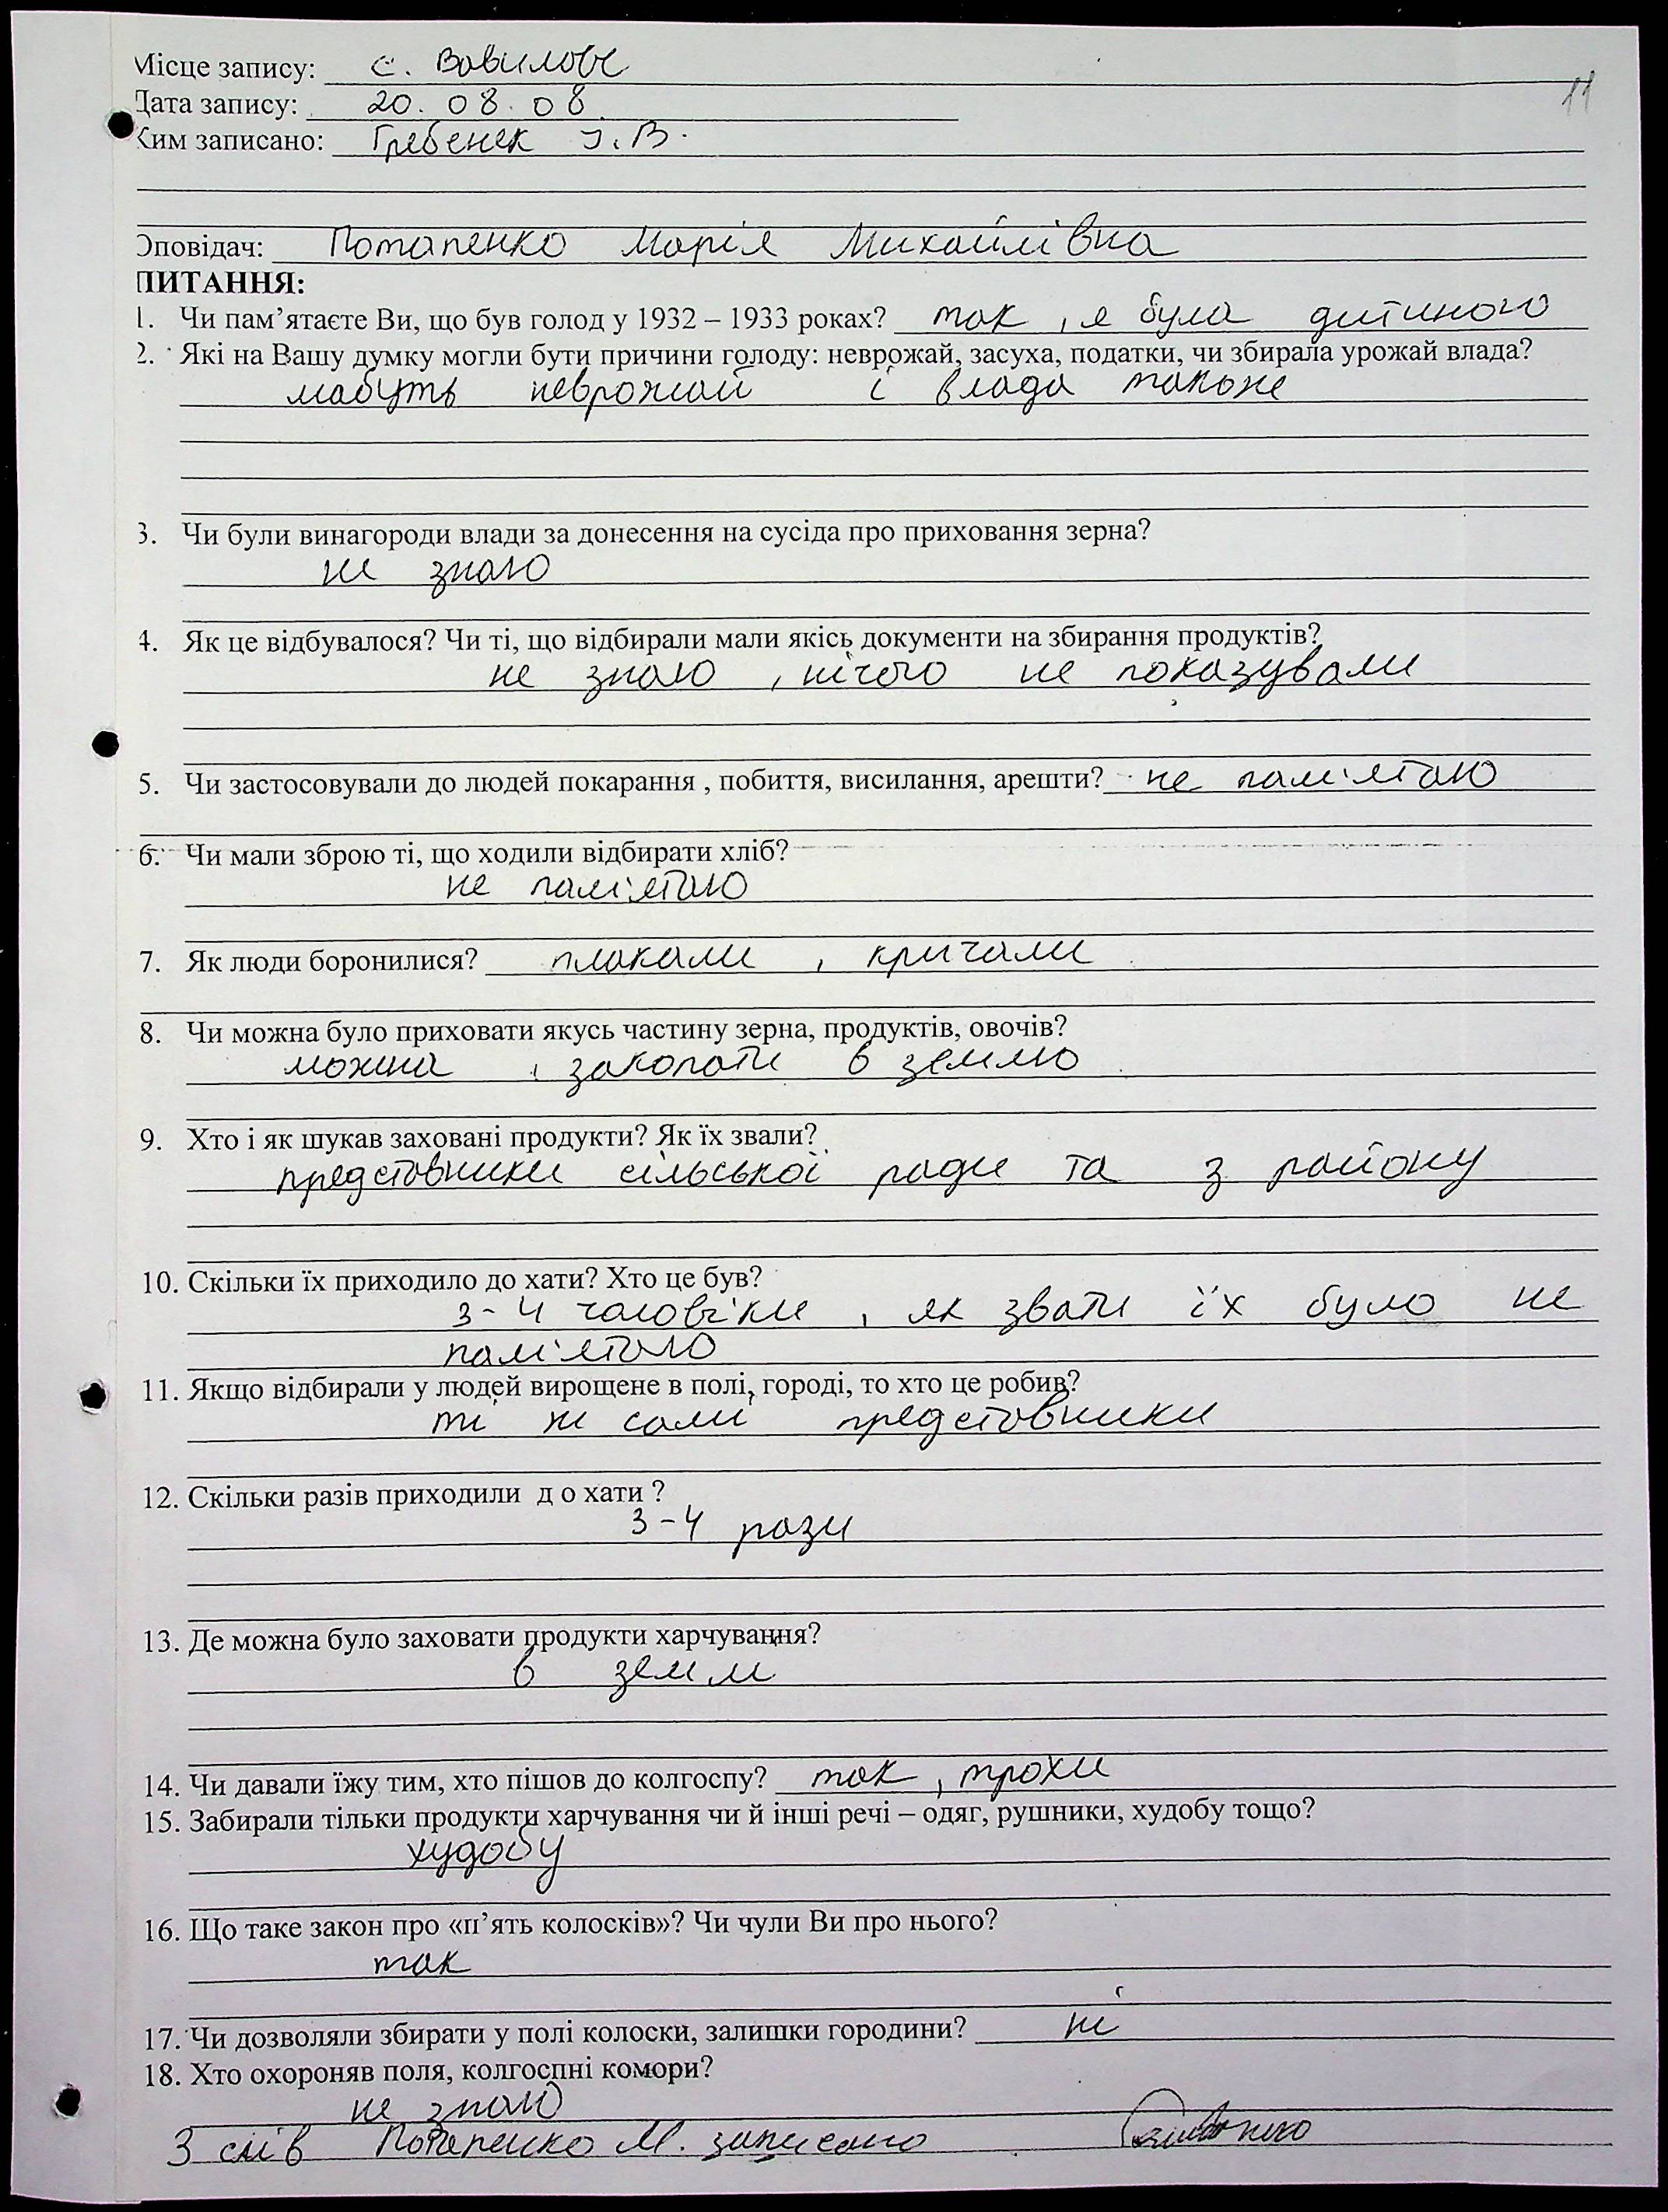 Місце запису: с. Вовилове
11
Дата запису: 20. 08. 08
Ким записано: Гребенек І. В.
Оповідач: Потапенко Марія Михайлівна
ПИТАННЯ:
1. Чи пам’ятаєте Ви, що був голод у 1932 – 1933 роках? так, я була дитиною
2. Які на Вашу думку могли бути причини голоду: неврожай, засуха, податки, чи збирала урожай влада?
мабуть неврожай і влада також
3. Чи були винагороди влади за донесення на сусіда про приховання зерна?
не знаю
4. Як це відбувалося? Чи ті, що відбирали мали якісь документи на збирання продуктів?
не знаю, нічого не показували
5. Чи застосовували до людей покарання , побиття, висилання, арешти? не пам'ятаю
6. Чи мали зброю ті, що ходили відбирати хліб?
не пам'ятаю
7. Як люди боронилися? плакали, кричали
8. Чи можна було приховати якусь частину зерна, продуктів, овочів?
можна, закопати в землю
9. Хто і як шукав заховані продукти? Як їх звали?
представники сільської ради та з району
10. Скільки їх приходило до хати? Хто це був?
3-4 чоловіки, як звати їх було не
пам'ятаю
11. Якщо відбирали у людей вирощене в полі, городі, то хто це робив?
ті ж самі представники
12. Скільки разів приходили д о хати ?
3-4 рази
13. Де можна було заховати продукти харчування?
в землі
14. Чи давали їжу тим, хто пішов до колгоспу? так, трохи
15. Забирали тільки продукти харчування чи й інші речі – одяг, рушники, худобу тощо?
худобу
16. Що таке закон про «п’ять колосків»? Чи чули Ви про нього?
так
17. Чи дозволяли збирати у полі колоски, залишки городини? ні
18. Хто охороняв поля, колгоспні комори?
не знаю
З слів Потапенко М. записано